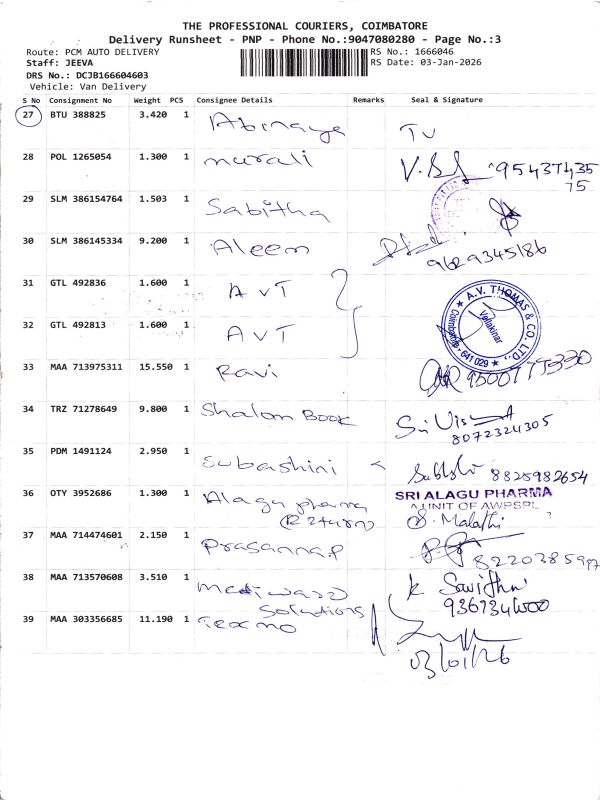 THE PROFESSIONAL COURIERS, COIMBATORE
Delivery Runsheet - PNP - Phone No.:9047080280 - Page No.:3
Route: PCM AUTO DELIVERY
RS No.: 1666046
Staff: JEEVA
RS Date: 03-Jan-2026
DRS No.: DCJB166604603
Vehicle: Van Delivery
S No Consignment No Weight PCS Consignee Details Remarks Seal & Signature
27 BTU 388825 3.420 1 Abinaya
28 POL 1265054 1.300 1 murali 9543743575
29 SLM 386154764 1.503 1 Sabitha
30 SLM 386145334 9.200 1 Aleem 9629345186
31 GTL 492836 1.600 1 AVT
32 GTL 492813 1.600 1 AVT
A.V. THOMAS & CO. LTD., Coimbatore - 641 029 Vellakinar
33 MAA 713975311 15.550 1 Ravi
34 TRZ 71278649 9.800 1 Shalom Book
8072324305
35 PDM 1491124 2.950 1 Subashini 8825982654
36 OTY 3952686 1.300 1 Alagu pharma
SRI ALAGU PHARMA
A UNIT OF AWPSPL
(Return) S. Malathi
37 MAA 714474601 2.150 1 Prasanna.P
38 MAA 713570608 3.510 1 Mediward K Savitha
Solutions
39 MAA 303356685 11.190 1 Texmo
03/01/26